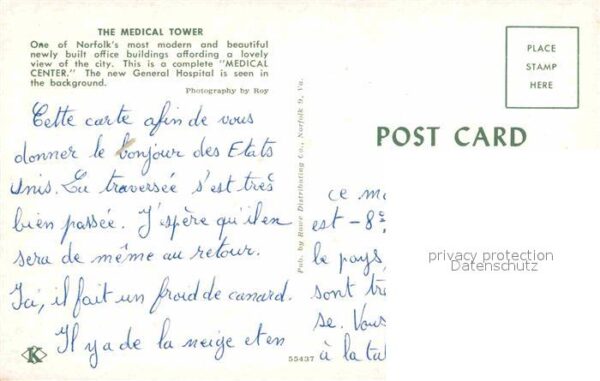 THE MEDICAL TOWER
One of Norfolk's most modern and beautiful
newly built office buildings affording a lovely
view of the city. This is a complete "MEDICAL
CENTER." The new General Hospital is seen in
the background.
Photography by Roy
Cette carte afin de vous
donner le bonjour des Etats
Unis. La traversée s'est très
bien passée. J'espère qu'il en
sera de même au retour.
Ici, il fait un froid de canard.
Il y a de la neige et en
K
55437
Pub. by Rowe Distributing Co., Norfolk 9, Va.
PLACE
STAMP
HERE
POST CARD
ce m
est -8°
le pays
sont tr
se. Vous
à la ta
privacy protection
Datenschutz